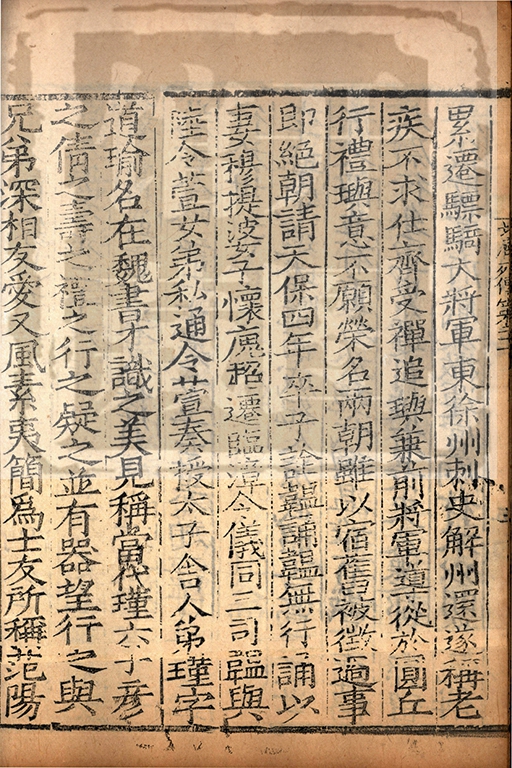 累遷驃騎大將軍東徐州刺史解州還遂稱老
疾不求仕齊受禪追璵兼前將軍導從於圓丘
行禮璵意不願榮名兩朝雖以宿舊被徵過事
即絕朝請天保四年卒子詮韞誦韞無行誦以
妻穆提婆子懷廆招遷臨漳令儀同三司韞與
陸令萱女弟私通令萱奏授太子舍人弟瑾字
道瑜名在魏書才識之美見稱當代瑾六子彥
之倩之壽之禮之行之疑之並有器望行之與
兄弟深相友愛又風素夷簡爲士友所稱范陽